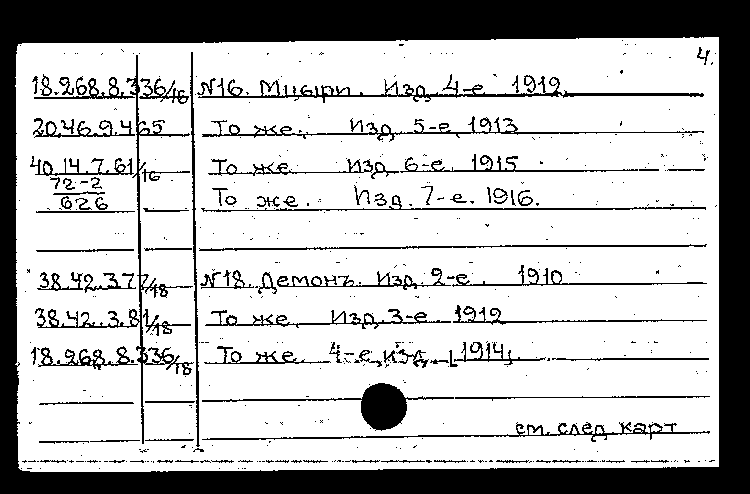 4.
18.268.8.336/16 №16. Мцыри. Изд. 4-е 1912.
20.46.9.465 То же. Изд. 5-е. 1913
40.14.7.61/16 То же Изд. 6-е. 1915
72-2
626 То же. Изд. 7-е. 1916.
38.42.3.77/18 №18. Демонъ. Изд. 2-е. 1910
38.42.3.81/18 То же. Изд. 3-е. 1912
18.268.8.336/18 То же. 4-е изд. [1914].
см. след. карт